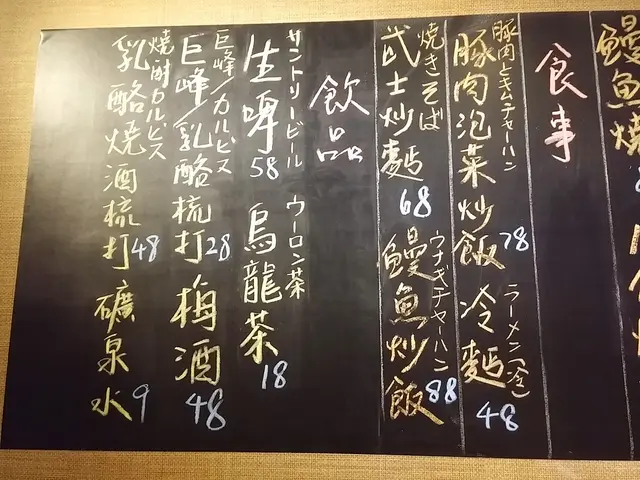 鰻魚燒
食事
豚肉とキムチャーハン
豚肉泡菜炒飯78
ラーメン(冷)
冷麵48
焼きそば
武士炒麵68
ウナギチャーハン
鰻魚炒飯88
飲品
サントリービール
生啤58
ウーロン茶
烏龍茶18
巨峰/カルピス
巨峰/乳酪梳打28
梅酒48
焼酎カルピス
乳酪焼酒梳打48
礦泉水9